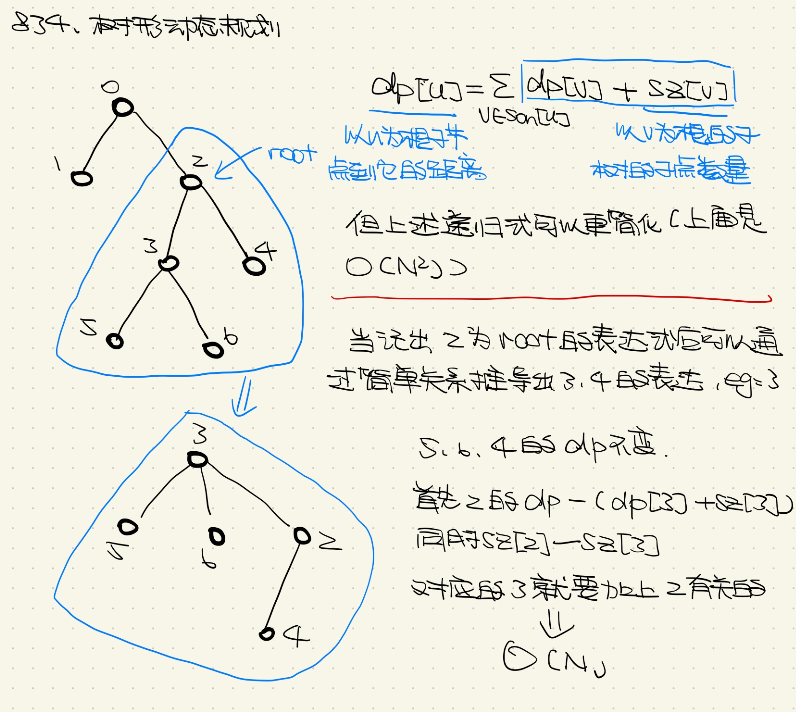 834、树形动态规划
0
1
2
root
3
4
5
6
dp[u] = Σ dp[v] + sz[v]
v∈son[u]
以u为根子节
点到它的距离
以v为根的子
树的子点数量
但上述递归式可以更简化（上面是
O(N²)）
当记出 2为root的表达式后可以通
过简单关系推导出3、4的表达，eg=3
3
5
6
2
4
5、6、4的dp不变.
首先2的dp-(dp[3]+sz[3])
同时sz[2]-sz[3]
对应的3就要加上2有关的
O(N)